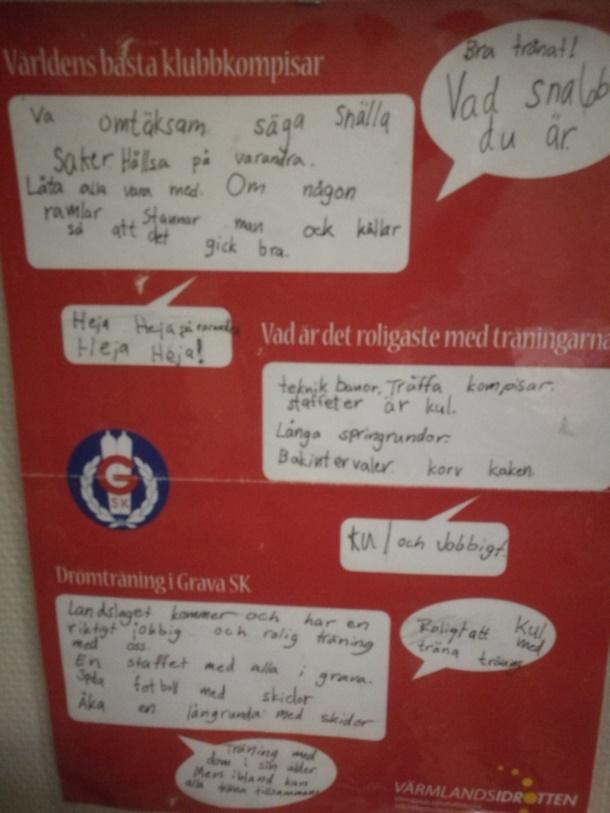 Världens bästa klubbkompisar
Bra tränat!
Vad snabb
du är
Va omtäksam säga Snälla
Saker Hällsa på varandra.
Låta alla vara med. Om någon
ramlar så stannar man ock kållar
att det gick bra.
Heja Heja på varandra
Heja Heja!
Vad är det roligaste med träningarna
teknik banor. Träffa kompisar.
staffeter är kul.
Långa springrundor.
Bakintervaler. korv kaken
G
SK
Kul och Jobbigt.
Drömträning i Grava SK
Landslaget kommer och har en
riktigt jobbig och rolig träning
med oss.
En staffet med alla i grava.
Spela fotboll med skidor
Åka en långrunda med skidor
Roligt att Kul
träna med
träning
Träning med
dom i sin ålder.
Men ibland kan
alla träna tillsammans
VÄRMLANDSIDROTTEN